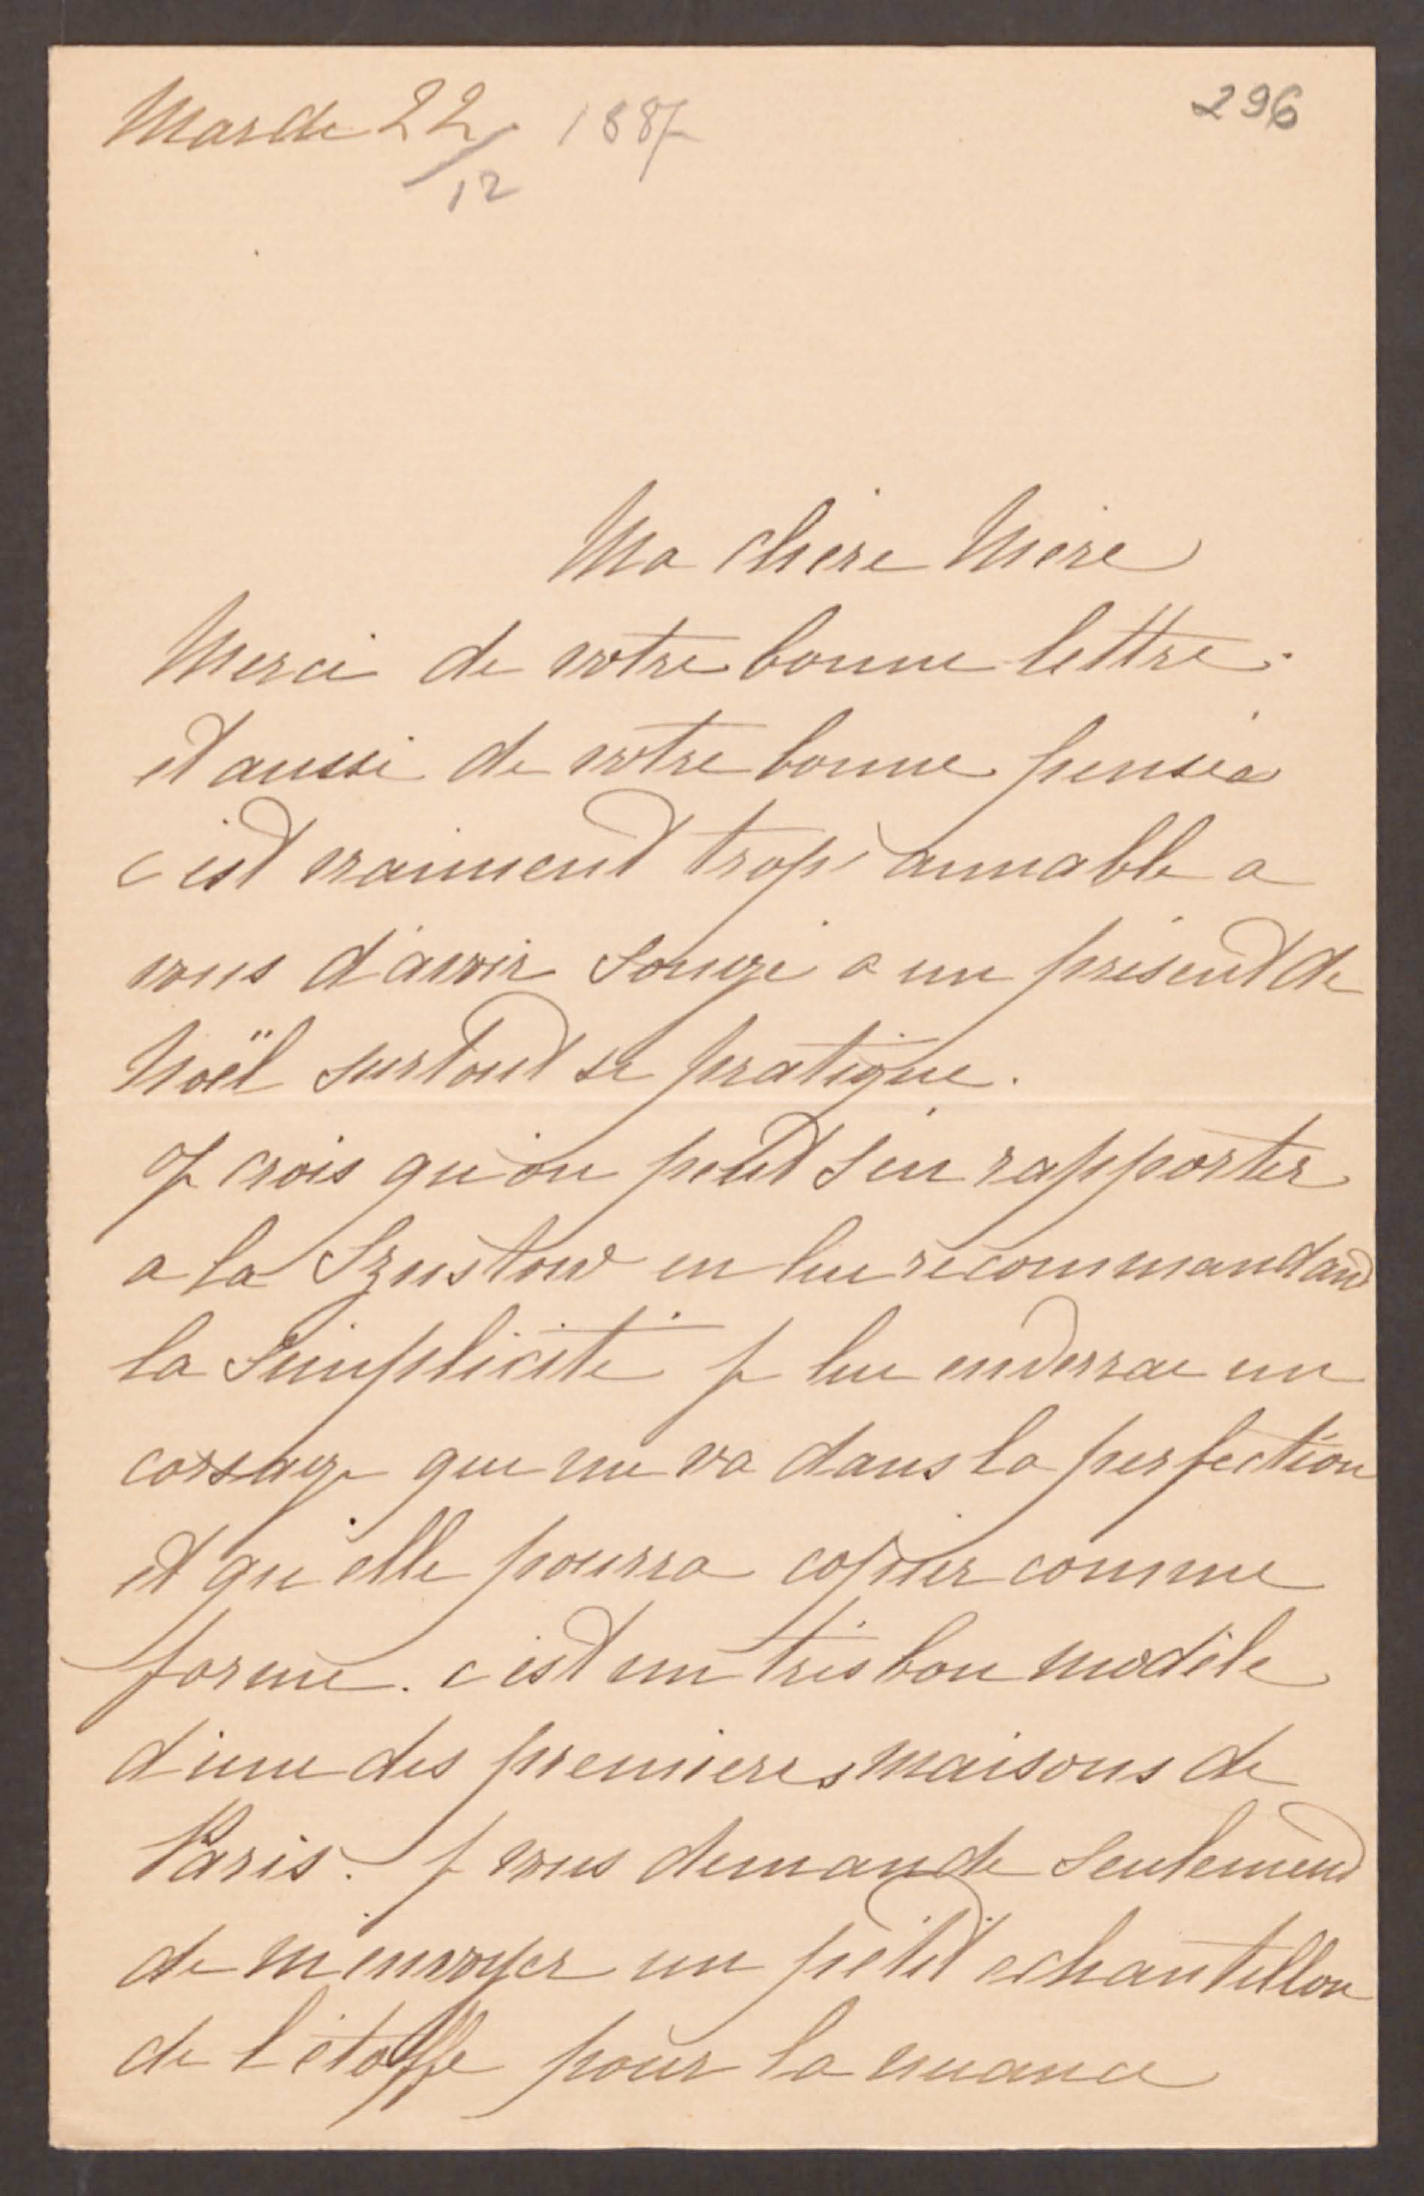 Mardi 22/12 1887
296
Ma chère Mère
Merci de votre bonne lettre
et aussi de votre bonne pensée
c'est vraiment trop aimable a
vous d'avoir songé a un présent de
Noël surtout si pratique.
Je crois qu'on peut s'en rapporter
a la Szustow en lui recommandant
la simplicité je lui enverrai un
corsage qui me va dans la perfection
et qu'elle pourra copier comme
forme. c'est un très bon modèle
d'une des premieres maisons de
Paris. je vous demande seulement
de m'envoyer un petit echantillon
de l'étoffe pour la nuance